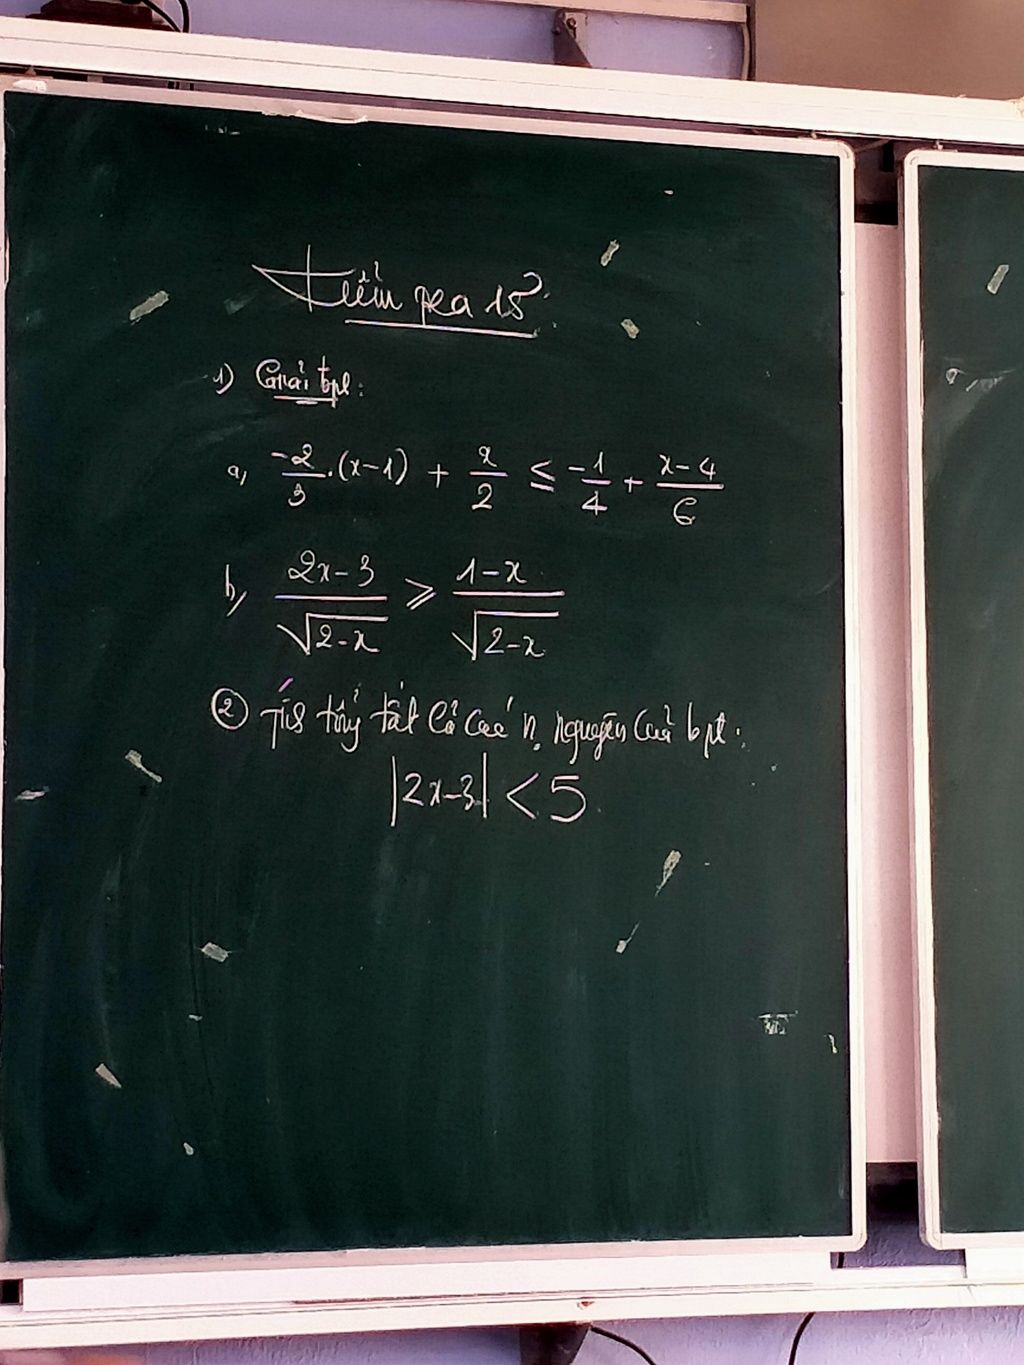 Kiểm tra 15'
1) Giải bpt:
a, -2/3 .(x-1) + x/2 ≤ -1/4 + x-4/6
b, 2x-3/√2-x ≥ 1-x/√2-x
② Tính tổng tất cả các n. nguyên của bpt:
|2x-3| < 5